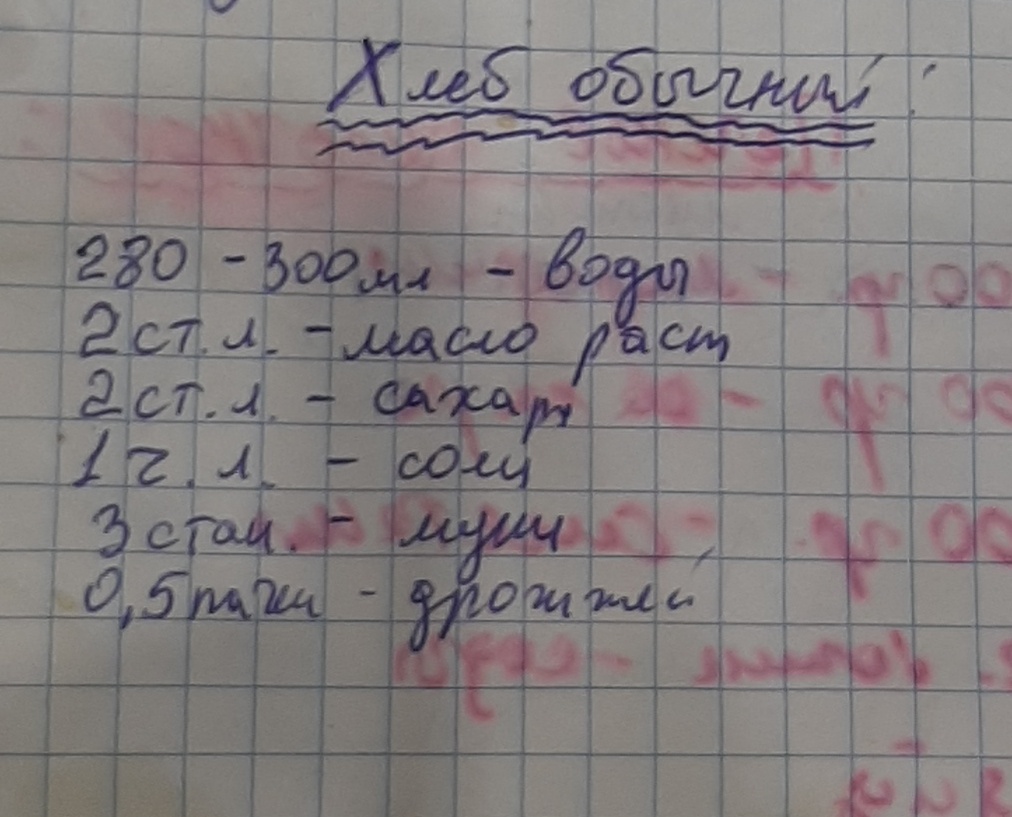 Хлеб обычный:
280 - 300 мл - воды
2 ст. л. - масло раст
2 ст. л. - сахар
1 ч. л. - соли
3 стак. - муки
0,5 пачки - дрожжей